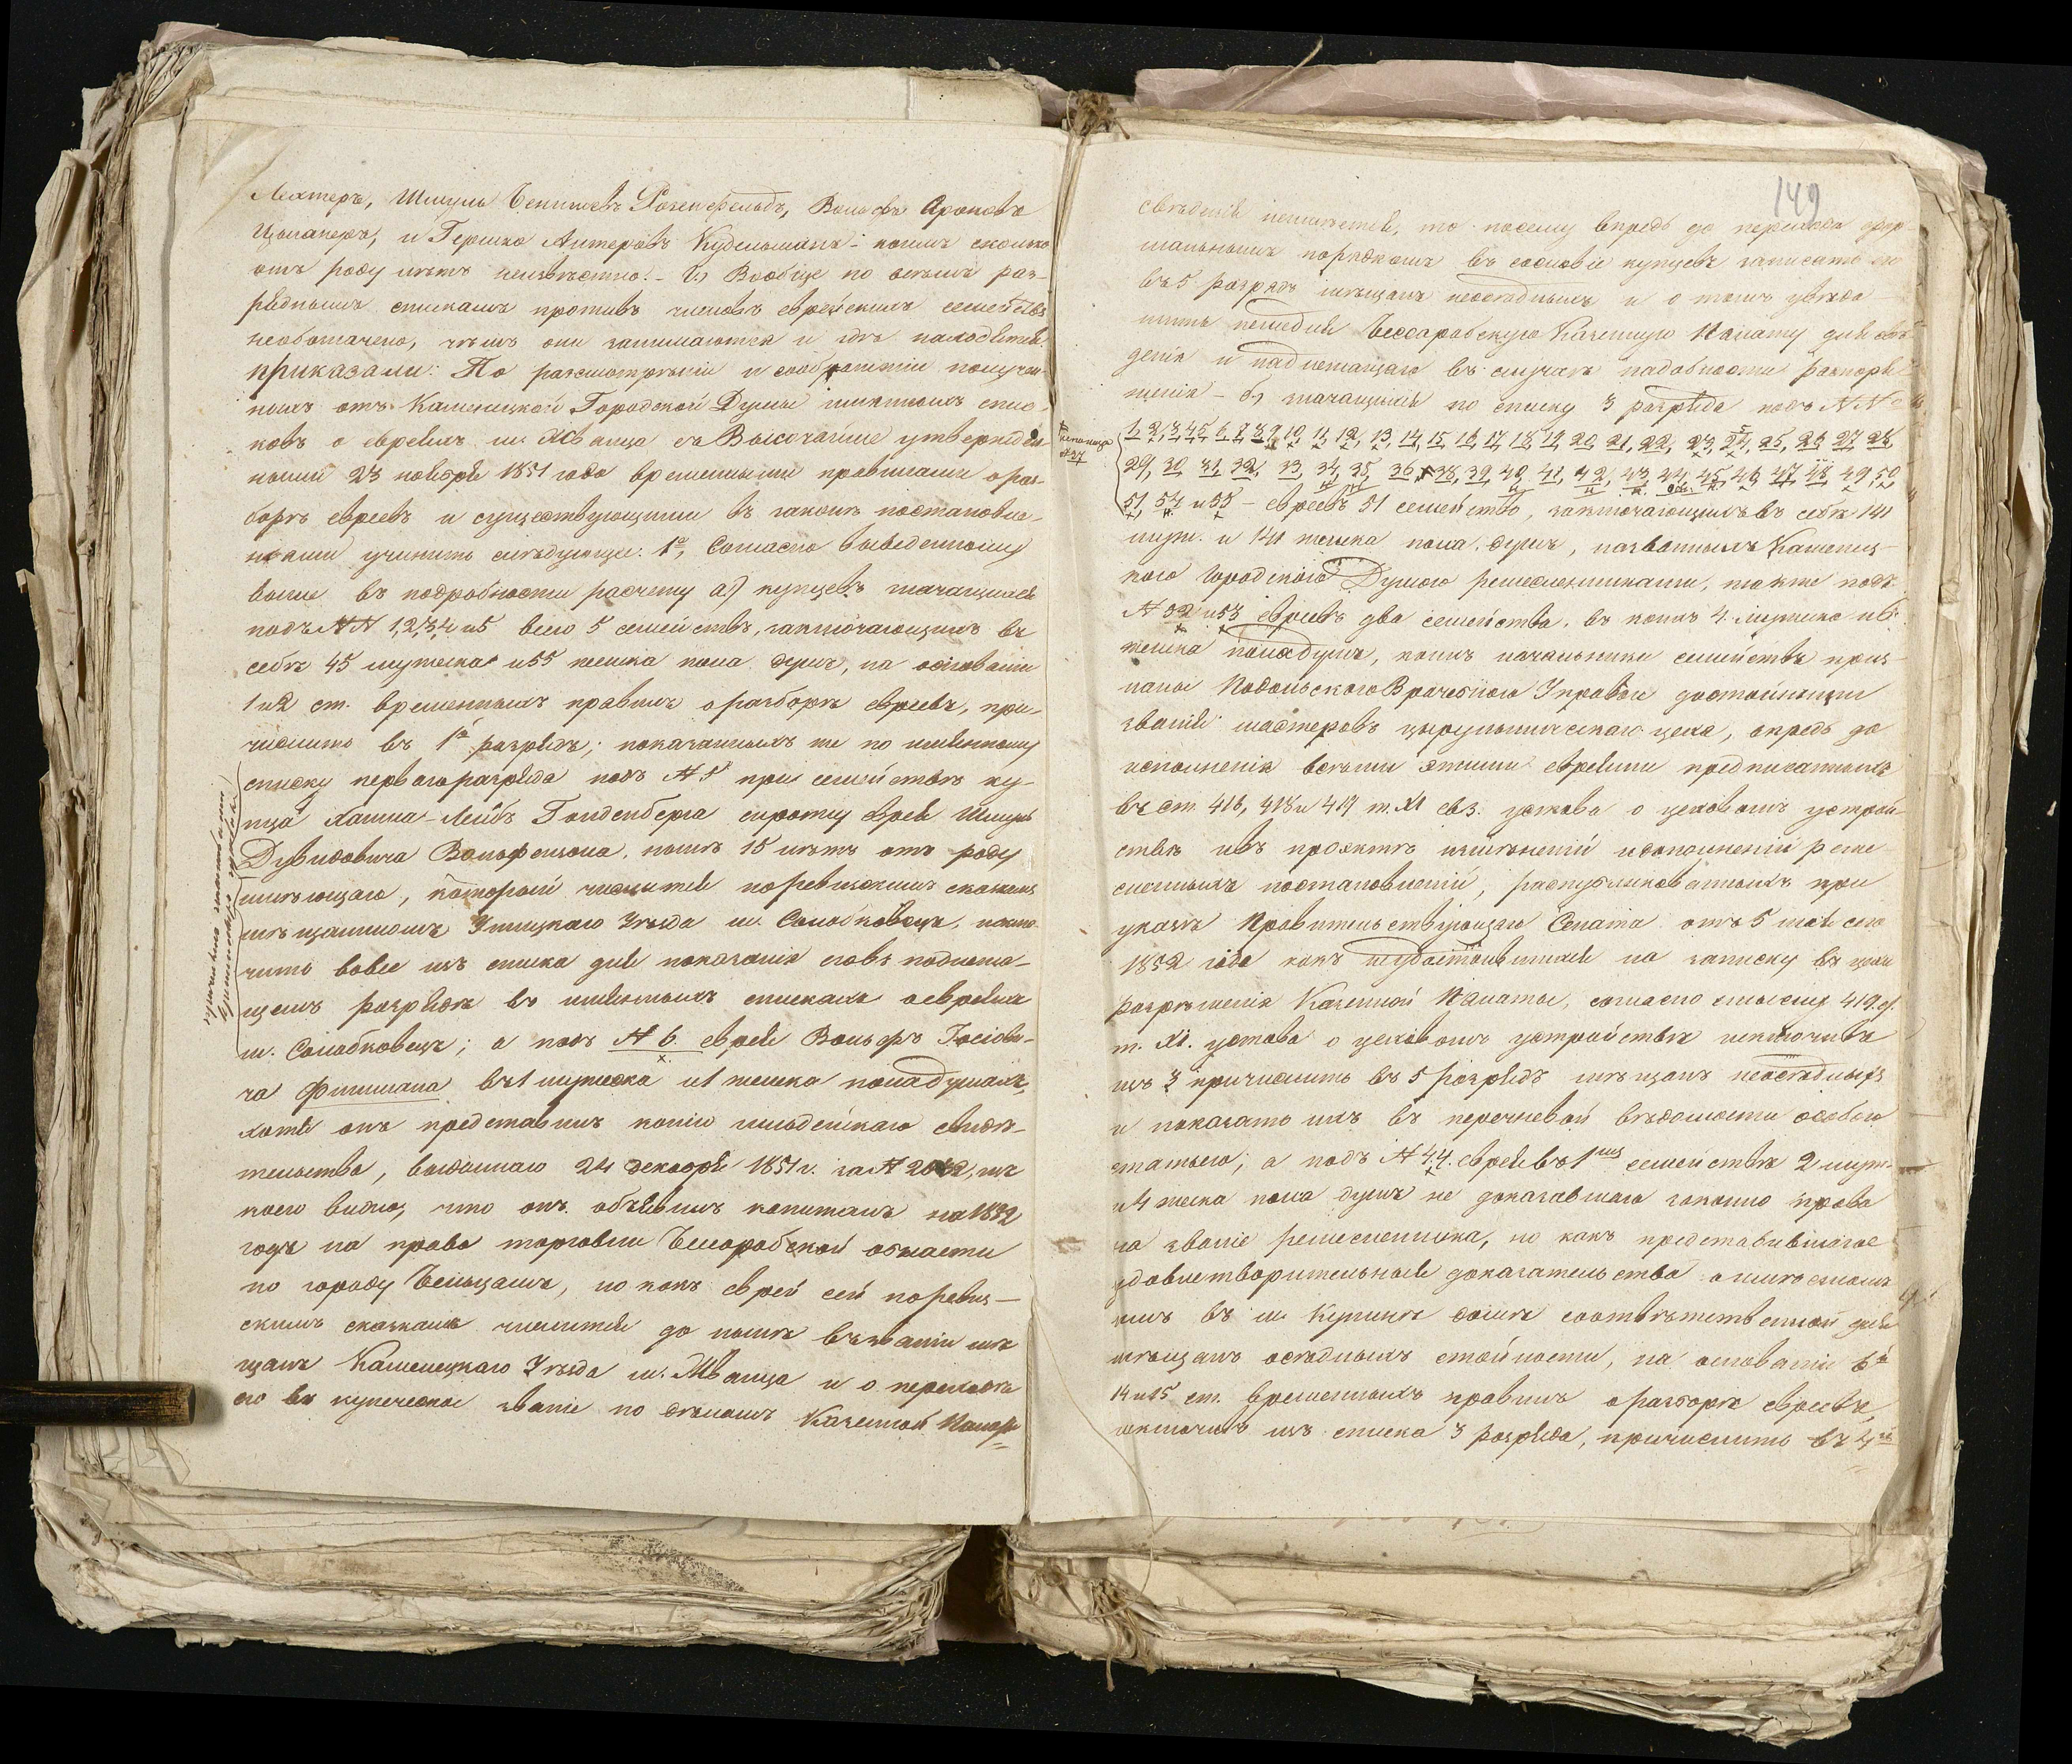 Лехтеръ, Шмуль Бенишевъ Розенфельдъ, Вольфъ Ароновъ
Цымаперъ, и Гершко Антеровъ Кудельманъ – коимъ сколько
отъ роду лѣтъ неизвѣстно. – Вообще по всѣмъ раз-
ряднымъ спискамъ противъ членовъ еврейскихъ семействъ
необозначено, чѣмъ они занимаются и гдѣ находятся.
приказали: По разсмотрѣніи и соображеніи получен-
ныхъ отъ Каменецкой Городской Думы имянныхъ спис-
ковъ о евреяхъ м. Жванца съ Высочайше утвержден-
ными 23 ноября 1851 года временными правилами о раз-
борѣ евреевъ и существующими въ законѣ постановле-
ніями учинить слѣдующее: 1е, Согласно выведенному
выше въ подробности расчету а) купцевъ значащихся
подъ NN 1, 2, 3, 4 и 5 всего 5 семействъ, заключающихъ въ
себѣ 45 мужеска и 55 женска пола душъ, на основаніи
1 и 2 ст. временныхъ правилъ о разборѣ евреевъ, при-
числить въ 1й разрядъ; показаннаго же по имянному
списку перваго разряда подъ N 5 при семействѣ ку-
пца Хаима-Лейбъ Гольденберга сироту еврея Шмуль
Дувидовича Вольфензона, нынѣ 15 лѣтъ отъ роду
имѣющаго, который числится по ревизскимъ сказкамъ
мѣщаниномъ Ушицкаго Уѣзда м. Солобковецъ, исклю-
чить вовсе изъ списка для показанія его въ подлежа-
щемъ разрядѣ въ имянныхъ спискахъ о евреяхъ
м. Солобковецъ; а подъ N 6. еврея Вольфъ Іосіови-
ча Фишмана въ 1 мужеска и 1 женска пола душахъ,
хотя онъ представилъ копію гильдейскаго свидѣ-
тельства, выданнаго 24 декабря 1851 г. за N 2042, изъ
коего видно, что онъ объявилъ капиталъ на 1852
годъ на право торговли Бессарабской области
по городу Бельцамъ, но какъ еврей сей по ревиз-
скимъ сказкамъ числится до нынѣ въ званіи мѣ-
щанъ Каменецкаго Уѣзда м. Жванца и о переходѣ
его въ купеческое званіе по дѣламъ Казенной Палаты
149
свѣденія неимѣется, то посему впредь до перехода фор-
мальнымъ порядкомъ въ сословіе купцевъ записать его
въ 5 разрядъ мѣщанъ неосѣдлыхъ и о томъ увѣдо-
мить немедля Бессарабскую Казенную Палату для свѣ-
денія и надлежащаго въ случаѣ надобности распоря-
женія – б) значащихся по списку 3 разряда подъ NN
1, 2, 3, 4, 5, 6, 7, 8, 9, 10, 11, 12, 13, 14, 15, 16, 17, 18, 19, 20, 21, 22, 23, 24, 25, 26, 27, 28,
29, 30, 31, 32, 33, 34, 35, 36, 38, 39, 40, 41, 42, 43, 44, 45, 46, 47, 48, 49, 50,
51, 54 и 55 – евреевъ 51 семейство, заключающихъ въ себѣ 141
муж. и 141 женска пола душъ, названныхъ Каменец-
кою Городскою Думою ремесленниками, также подъ
N 52 и 53 евреевъ два семейства, въ коихъ 4. мужеска и 6.
женска пола душъ, коихъ начальники семействъ приз-
наны Подольскою Врачебною Управою достойными
званія мастеровъ цырульническаго цеха, впредь до
исполненія всѣми этими евреями предписанныхъ
въ ст. 416, 418 и 419 т. XI свз. устава о цеховомъ устрой-
ствѣ и въ проэктѣ измѣненій и дополненій реме-
сленныхъ постановленій, распубликованныхъ при
указѣ Правительствующаго Сената отъ 5 мая сего
1852 года какъ неудостоившихся на записку въ цехи
разрѣшенія Казенной Палаты, согласно смыслу 419 ст.
т. XI. устава о цеховомъ устройствѣ исключивъ
изъ 3 причислить въ 5 разрядъ мѣщанъ неосѣдлыхъ
и показать ихъ въ перечневой вѣдомости особою
статьею; а подъ N 44. еврея въ 1мъ семействѣ 2 муж.
и 4 женска пола душъ не доказавшаго законно права
на званіе ремесленника, но какъ представившаго
удовлетворительныя доказательства о имѣемомъ
имъ въ м. Купинѣ домѣ соотвѣтственной для
мѣщанъ осѣдлыхъ стоимости, на основаніи
14 и 15 ст. временныхъ правилъ о разборѣ евреевъ,
исключивъ изъ списка 3 разряда, причислить въ 4й